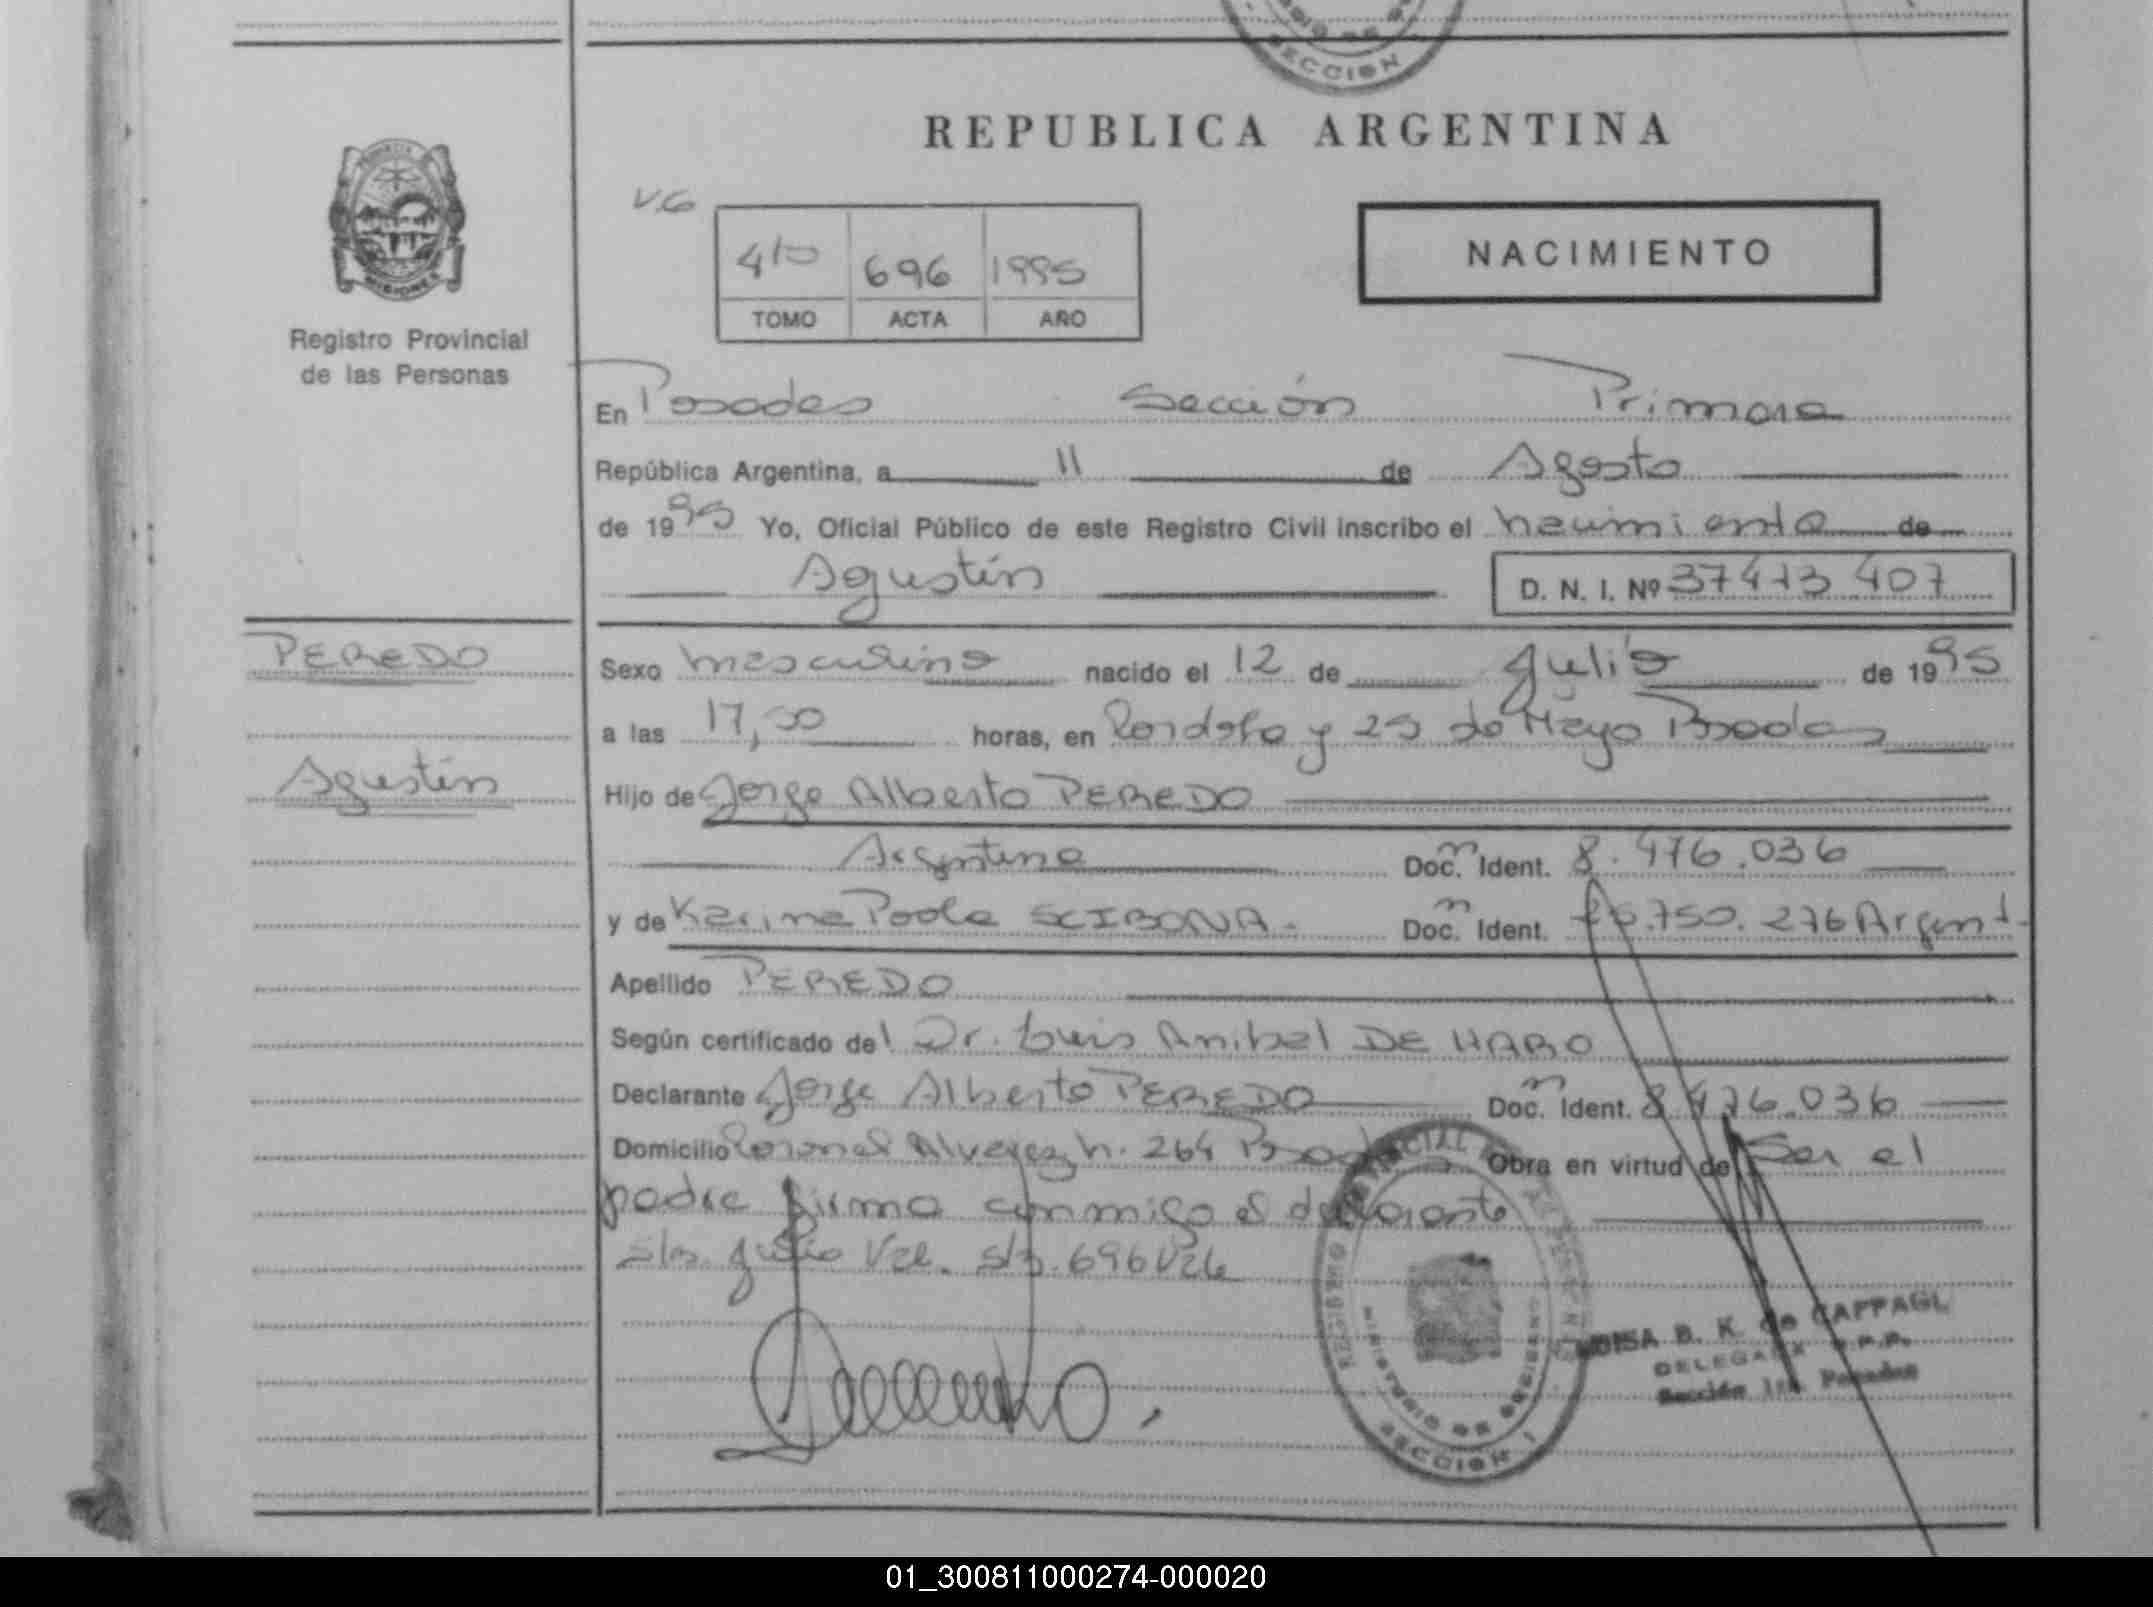 SECCION
REPUBLICA ARGENTINA
V.G
NACIMIENTO
410 696 1995
TOMO ACTA AÑO
PROVINCIA
MISIONES
Registro Provincial
de las Personas
En Posadas Sección Primera
República Argentina, a 11 de Agosto
de 1995 Yo, Oficial Público de este Registro Civil inscribo el nacimiento de
Agustín D. N. I. Nº 37473 407
PEREDO
Sexo masculino nacido el 12 de Julio de 1995
a las 17,30 horas, en Córdoba y 25 de Mayo Posadas
Agustín
Hijo de Jorge Alberto PEREDO
Argentino Doc. Ident. 8.476.036
y de Karina Paola SCIBONA. Doc. Ident. .750.276 Argent.
Apellido PEREDO
Según certificado del Dr. Luis Anibal DE HARO
Declarante Jorge Alberto PEREDO Doc. Ident. 8.476.036
Domicilio Coronel Alvarez n. 264 Posadas Obra en virtud de Ser el
padre firma conmigo el declarante
Julio Vale. 696 Vale
REGISTRO PROVINCIAL DE LAS PERSONAS
MINISTERIO DE GOBIERNO
SECCION 1
B. K. de CAPPAGLI
DELEGADA R.P.P.
Sección 1ra. Posadas
01_300811000274-000020